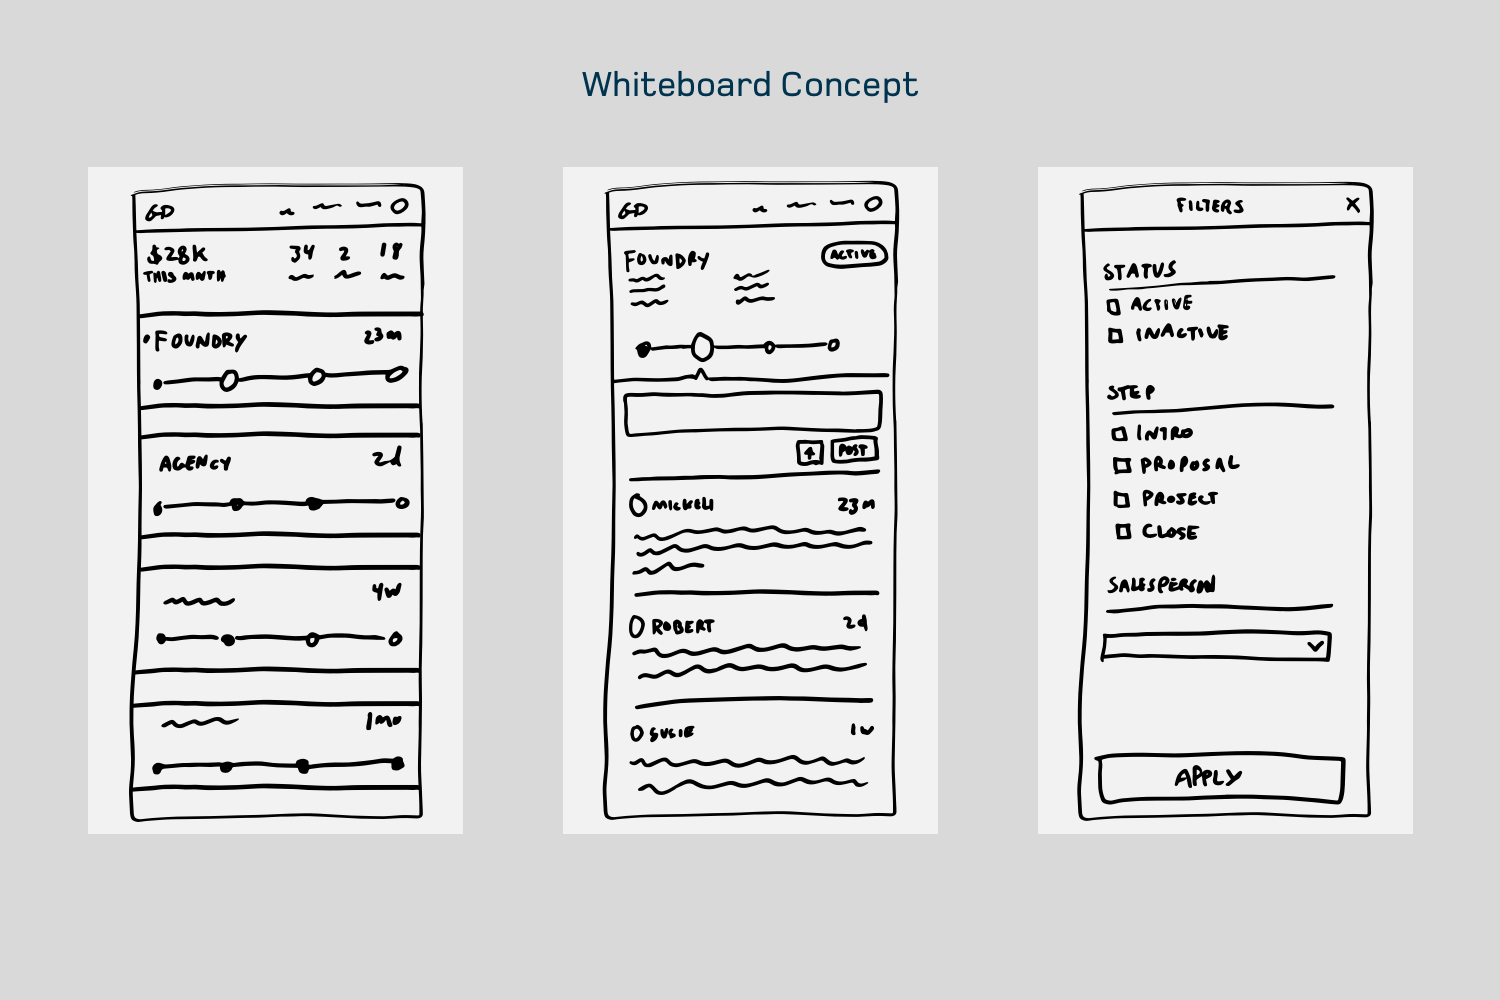 Whiteboard Concept
GD
$28K 34 2 18
THIS MNTH
FOUNDRY 23m
AGENCY 2d
4W
1mo
GD
FOUNDRY ACTIVE
POST
MICKELI 23m
ROBERT 2d
SUSIE 1w
FILTERS X
STATUS
ACTIVE
INACTIVE
STEP
INTRO
PROPOSAL
PROJECT
CLOSE
SALESPERSON
APPLY